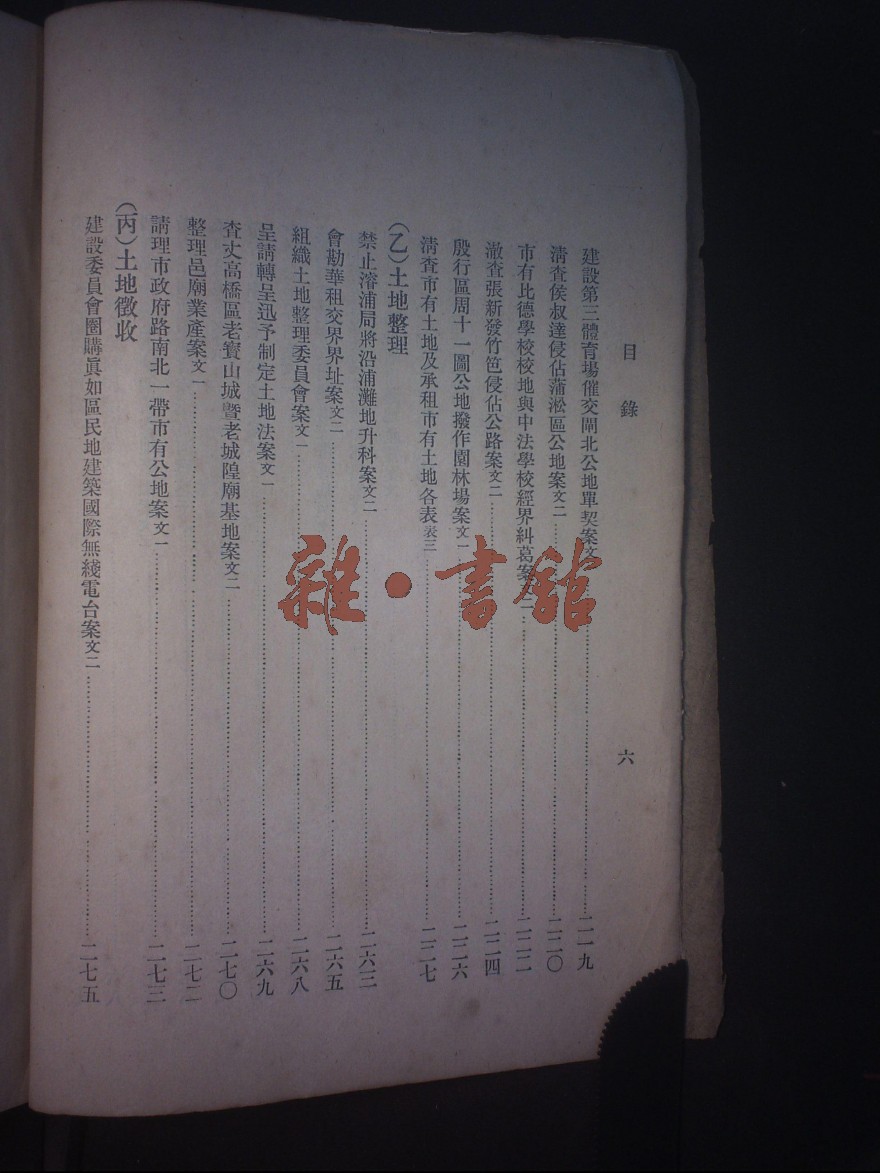 目錄
六
建設第三體育場催交閘北公地單契案文……二一九
淸查侯叔達侵佔蒲淞區公地案文二……二二〇
市有比德學校校地與中法學校經界糾葛案……二二二
澈查張新發竹笆侵佔公路案文二……二二四
殷行區周十一圖公地撥作園林場案文一……二二六
淸查市有土地及承租市有土地各表表三……二二七
(乙)土地整理
禁止濬浦局將沿浦灘地升科案文二……二六三
會勘華租交界界址案文二……二六五
組織土地整理委員會案文一……二六八
呈請轉呈迅予制定土地法案文一……二六九
查丈高橋區老寶山城暨老城隍廟基地案文二……二七〇
整理邑廟業產案文一……二七二
請理市政府路南北一帶市有公地案文一……二七三
(丙)土地徵收
建設委員會圈購眞如區民地建築國際無綫電台案文二……二七五
雜·書館